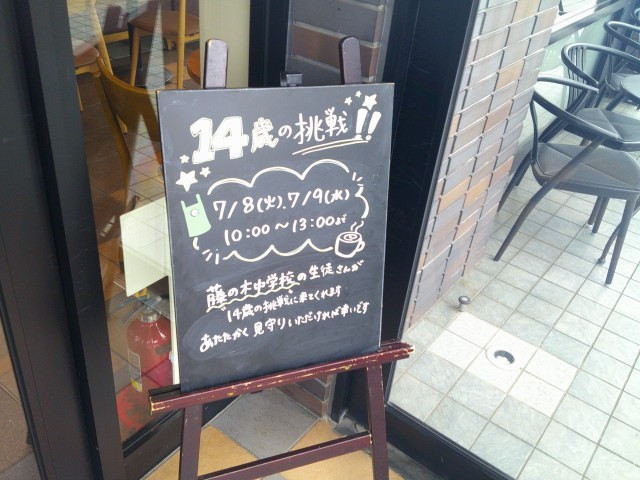 14歳の挑戦!!
7/8(火).7/9(水)
10:00～13:00まで
藤の木中学校の生徒さんが
14歳の挑戦に来てくれます
あたたかく見守りいただければ幸いです